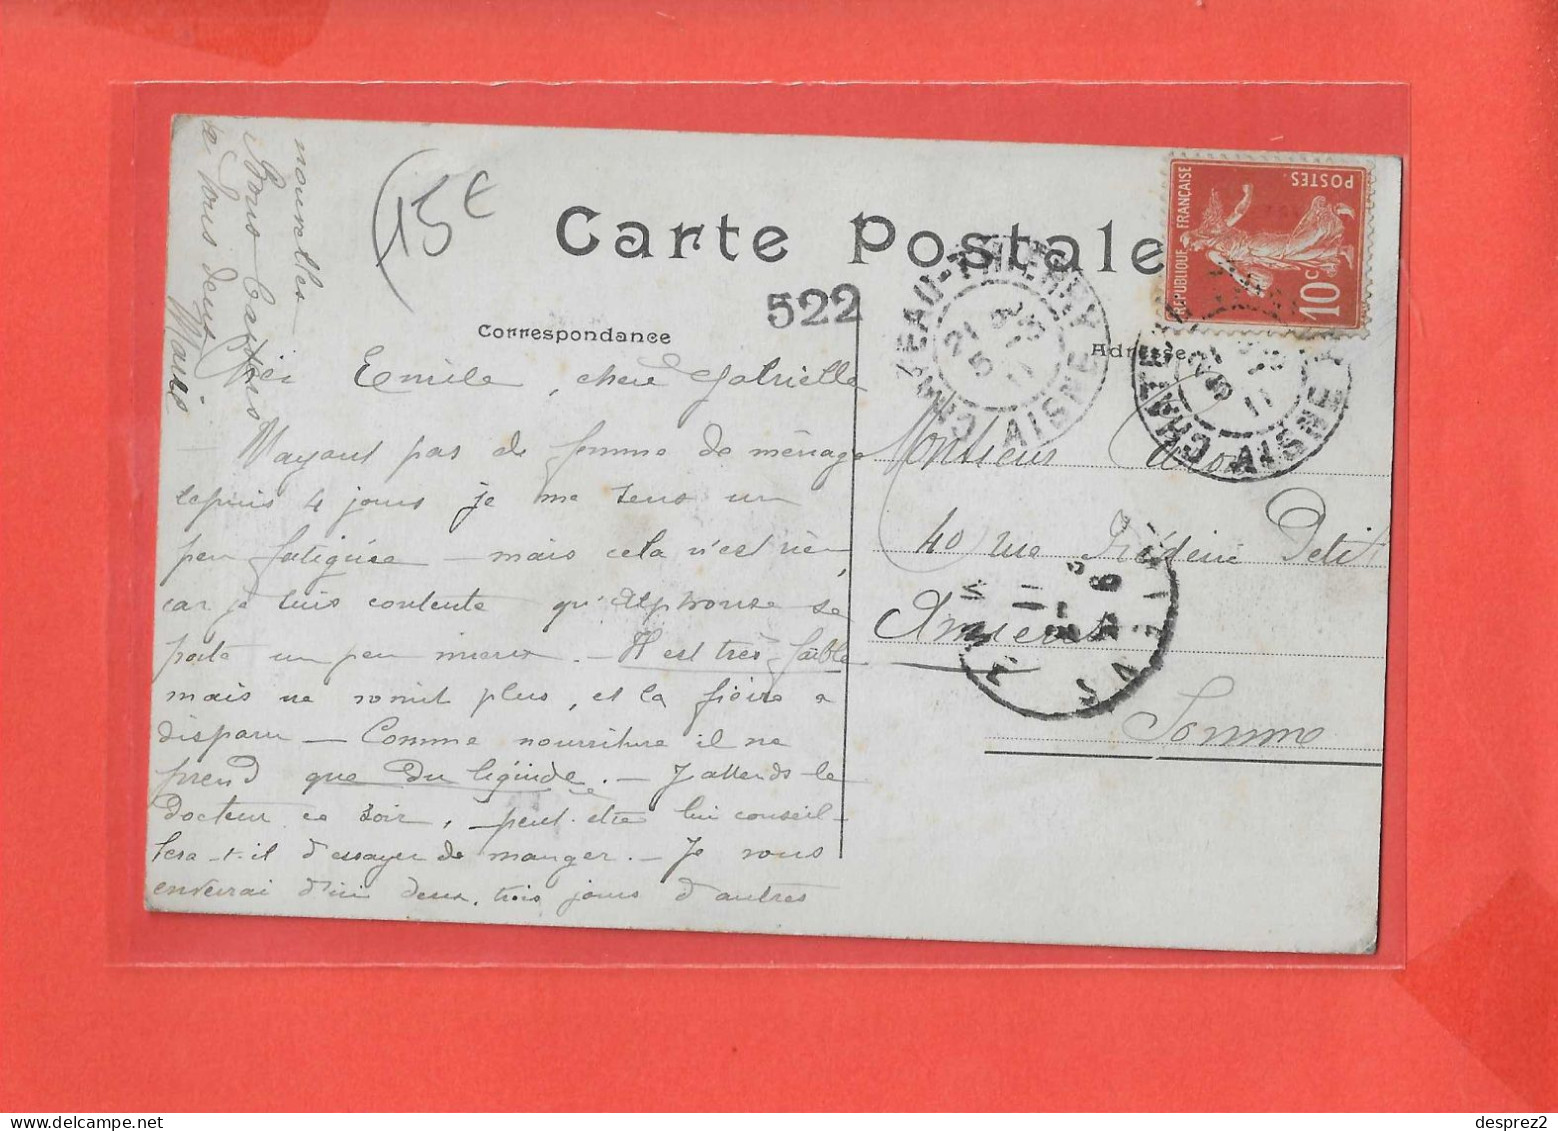 (15€
Carte Postale
522
Correspondance
Adresse
RÉPUBLIQUE FRANÇAISE
POSTES
10c
CHATEAU-THIERRY
AISNE
21 5 11
CHATEAU
AISNE
21 5 11
Emile, chère Gabrielle
N'ayant pas de femme de ménage
depuis 4 jours je me sens un
peu fatiguée – mais cela n'est rien
car je suis contente qu'Alphonse se
porte un peu mieux. – Il est très faible
mais ne vomit plus, et la fièvre a
disparu – Comme nourriture il ne
prend que du liquide. – J'attends le
docteur ce soir, peut-être lui conseil-
lera-t-il d'essayer de manger. – Je vous
enverrai d'ici deux, trois jours d'autres
nouvelles
Bons baisers
à tous deux
Marie
Monsieur
40 rue Frédéric Petit
Amiens
Somme
desprez2